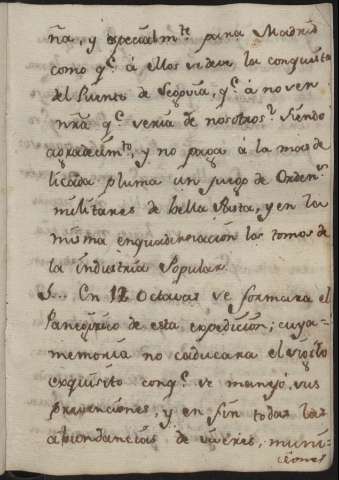 ña, y especialmte. para Madrid
como qe. á ellos se deve la conquista
del Puente de Segovia, qe. á no ven
qe. veria de nosotros? Siendo
agradecimto., y no paga a la mas de
licada pluma un juego de Ordens.
militares de bella Pasta, y en la
misma enquadernacion los tomos de
la industria Popular
5... En 12 Octavas se formara el
Panegirico de esta expedicion; cuya
memoria no caducara el
exquisito conqe. se manejó, sus
prevenciones, y en fin todas las
abundancias de viveres, muni-
ciones